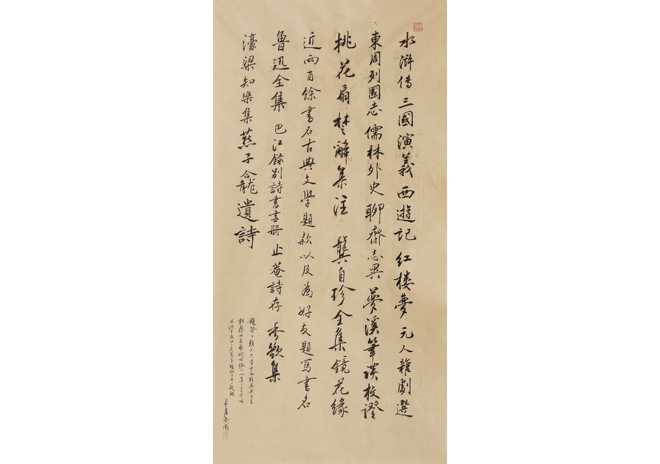 水滸傳 三國演義 西遊記 紅楼夢 元人雜劇選
東周列國志 儒林外史 聊齋志異 夢溪筆談校證
桃花扇 楚辭集注 龔自珍全集 鏡花緣
近向百餘書名古典文學題款以及為好友題寫書名
魯迅全集 巴江錄別詩書畫冊 止菴詩存 季歡集
濠梁知樂集 燕子龕遺詩